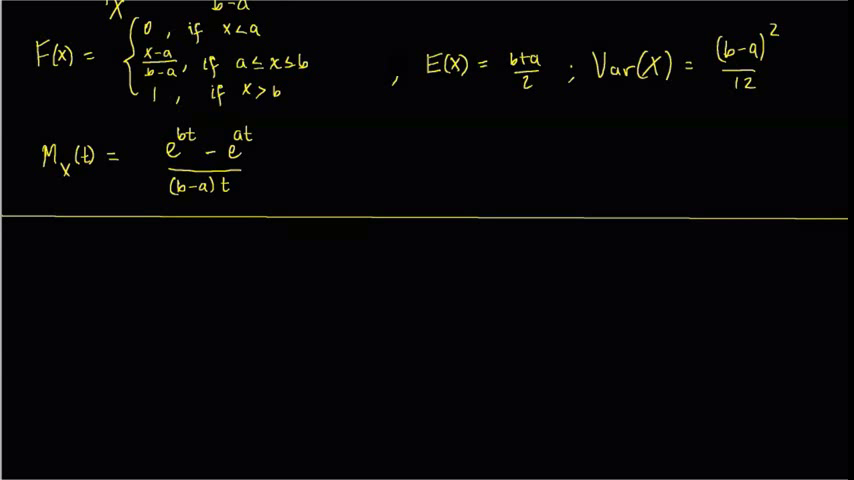 X b-a
F(x) = { 0, if x<a
x-a/b-a, if a≤x≤b
1, if x>b
, E(X) = b+a/2 ; Var(X) = (b-a)²/12
M_X(t) = e^{bt} - e^{at}/(b-a)t